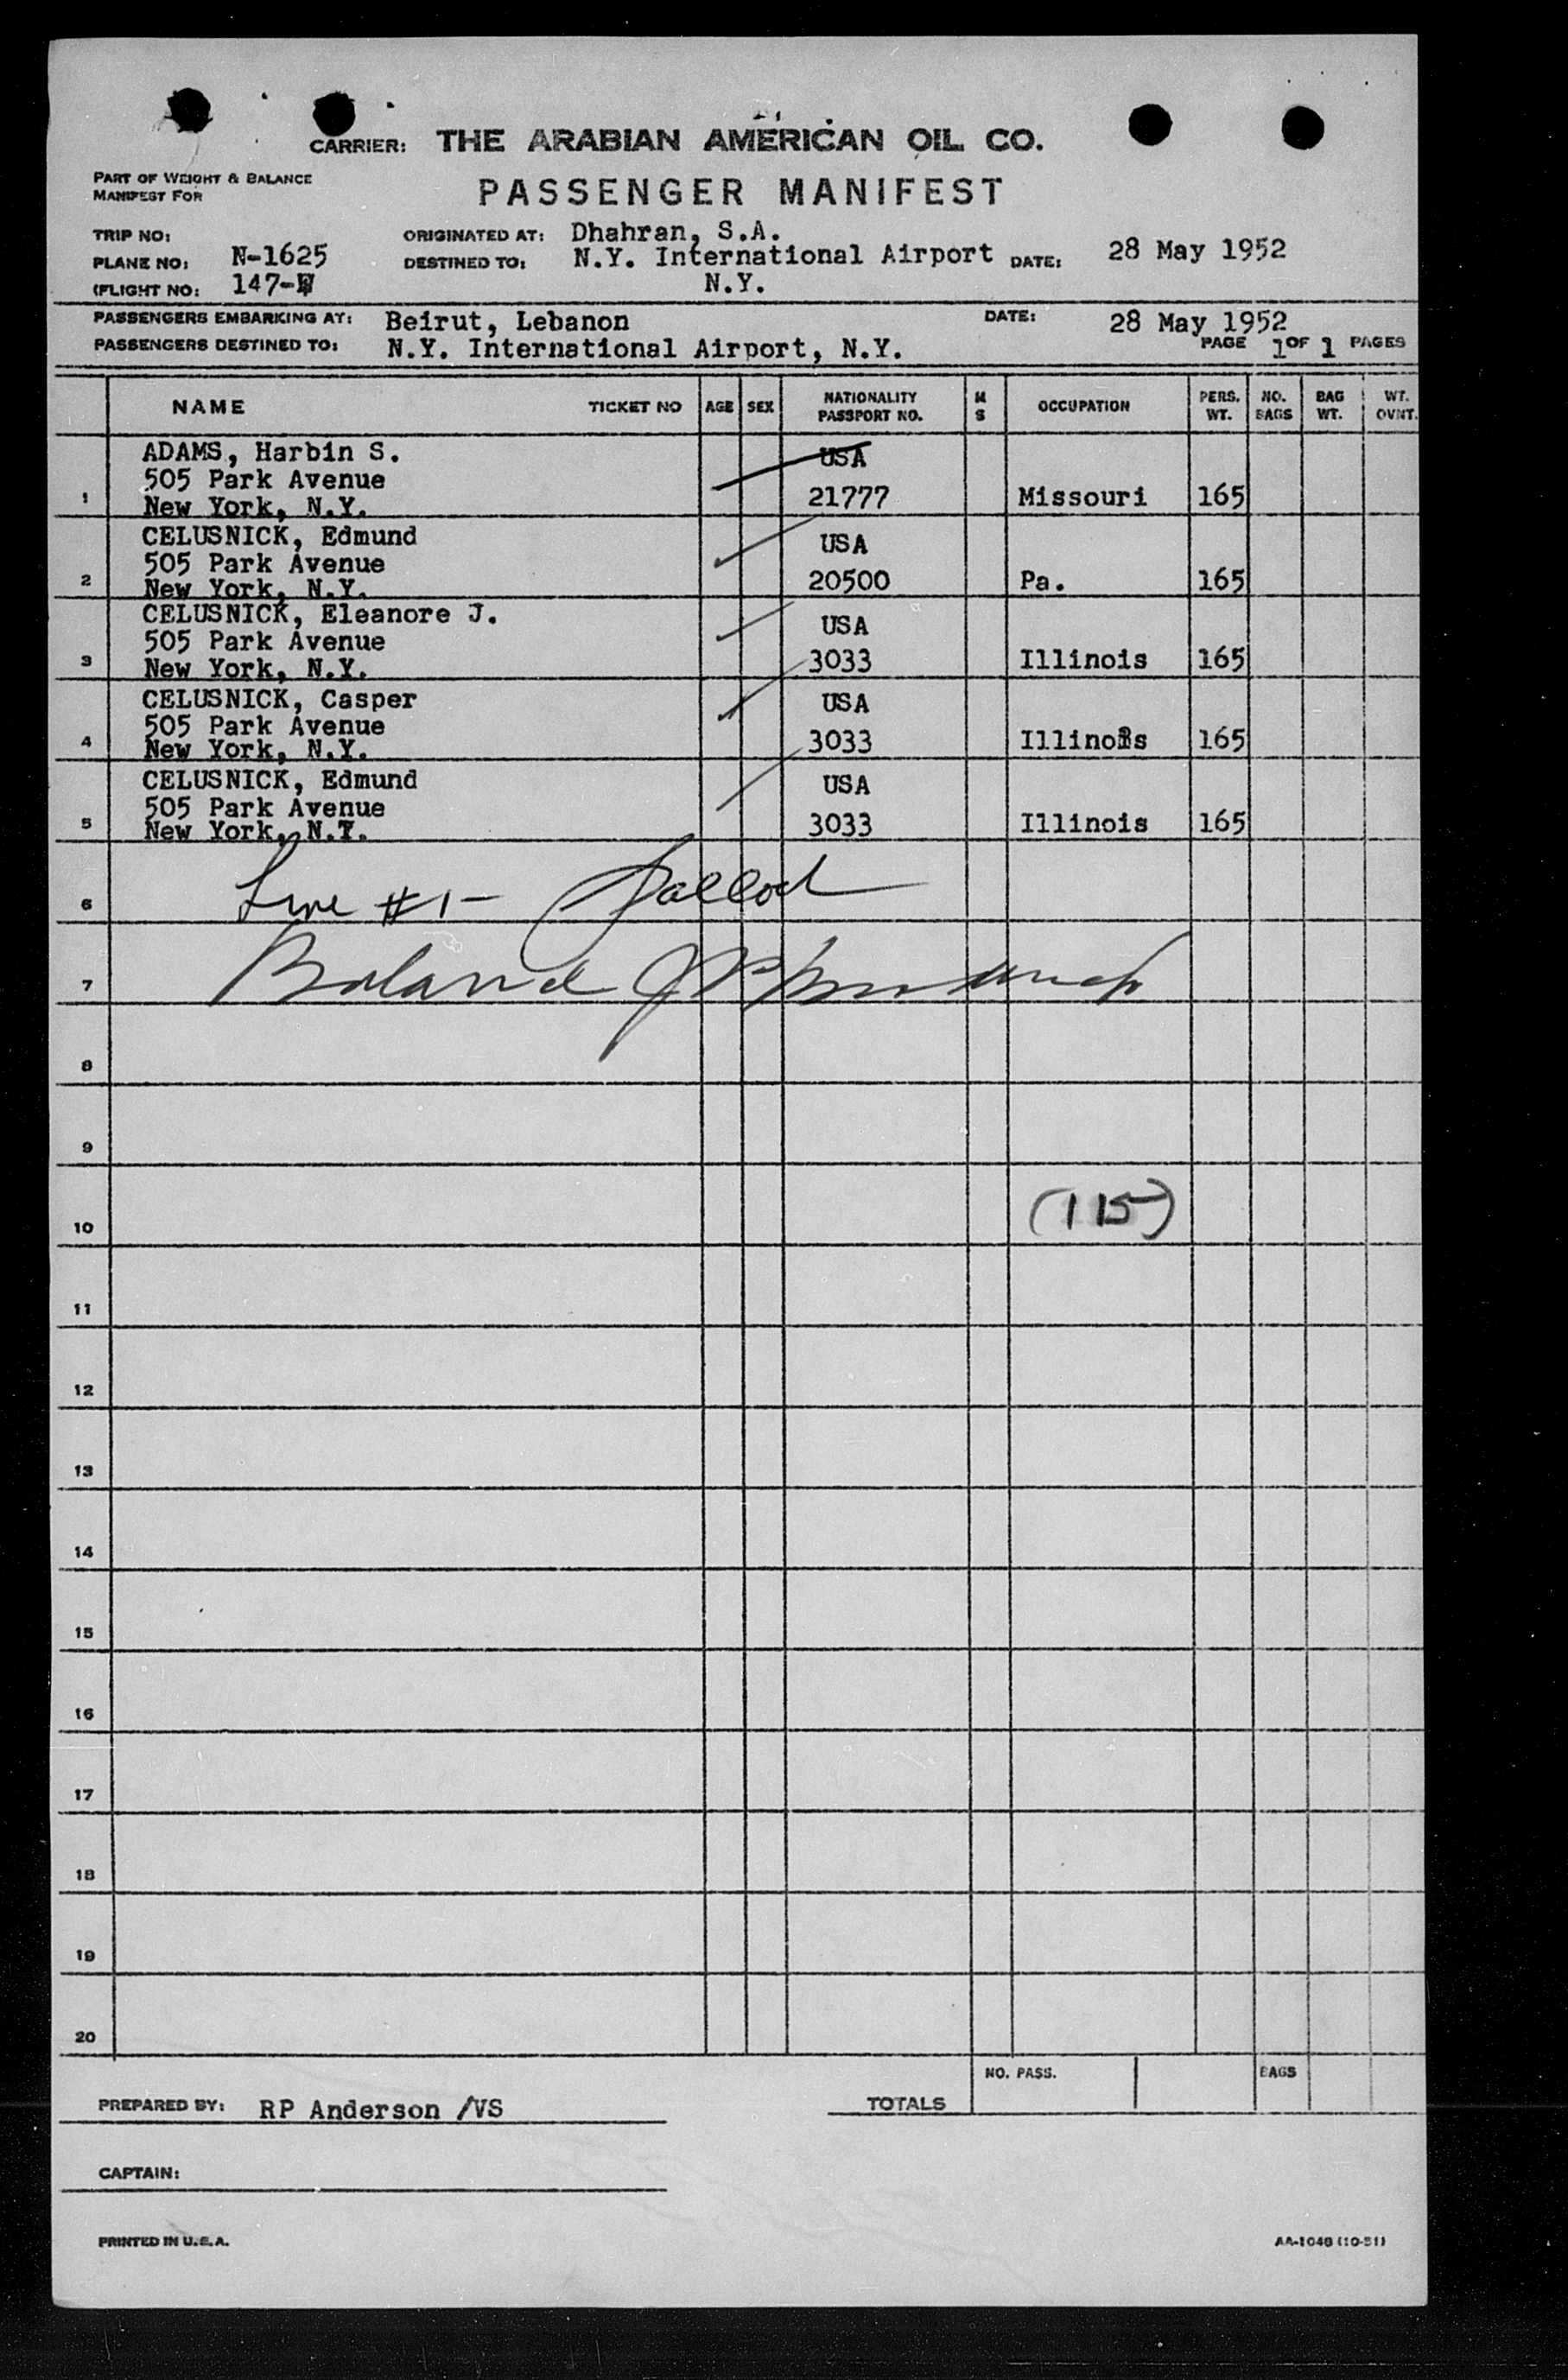 CARRIER: THE ARABIAN AMERICAN OIL CO.
PART OF WEIGHT & BALANCE
MANIFEST FOR
PASSENGER MANIFEST
TRIP NO:
ORIGINATED AT: Dhahran, S.A.
PLANE NO: N-1625
DESTINED TO: N.Y. International Airport DATE: 28 May 1952
FLIGHT NO: 147- N.Y.
PASSENGERS EMBARKING AT: Beirut, Lebanon DATE: 28 May 1952
PASSENGERS DESTINED TO: N.Y. International Airport, N.Y. PAGE 1 OF 1 PAGES
NAME TICKET NO AGE SEX NATIONALITY PASSPORT NO. M S OCCUPATION PERS. WT. NO. BAGS BAG WT. WT. OVNT.
ADAMS, Harbin S. USA
505 Park Avenue
1 New York, N.Y. 21777 Missouri 165
CELUSNICK, Edmund USA
505 Park Avenue
2 New York, N.Y. 20500 Pa. 165
CELUSNICK, Eleanore J. USA
505 Park Avenue
3 New York, N.Y. 3033 Illinois 165
CELUSNICK, Casper USA
505 Park Avenue
4 New York, N.Y. 3033 Illinois 165
CELUSNICK, Edmund USA
505 Park Avenue
5 New York, N.Y. 3033 Illinois 165
6 Line #1-
7
8
9
10 (115)
11
12
13
14
15
16
17
18
19
20
NO. PASS. BAGS
PREPARED BY: RP Anderson /VS TOTALS
CAPTAIN:
PRINTED IN U.S.A. AA-1046 (10-51)